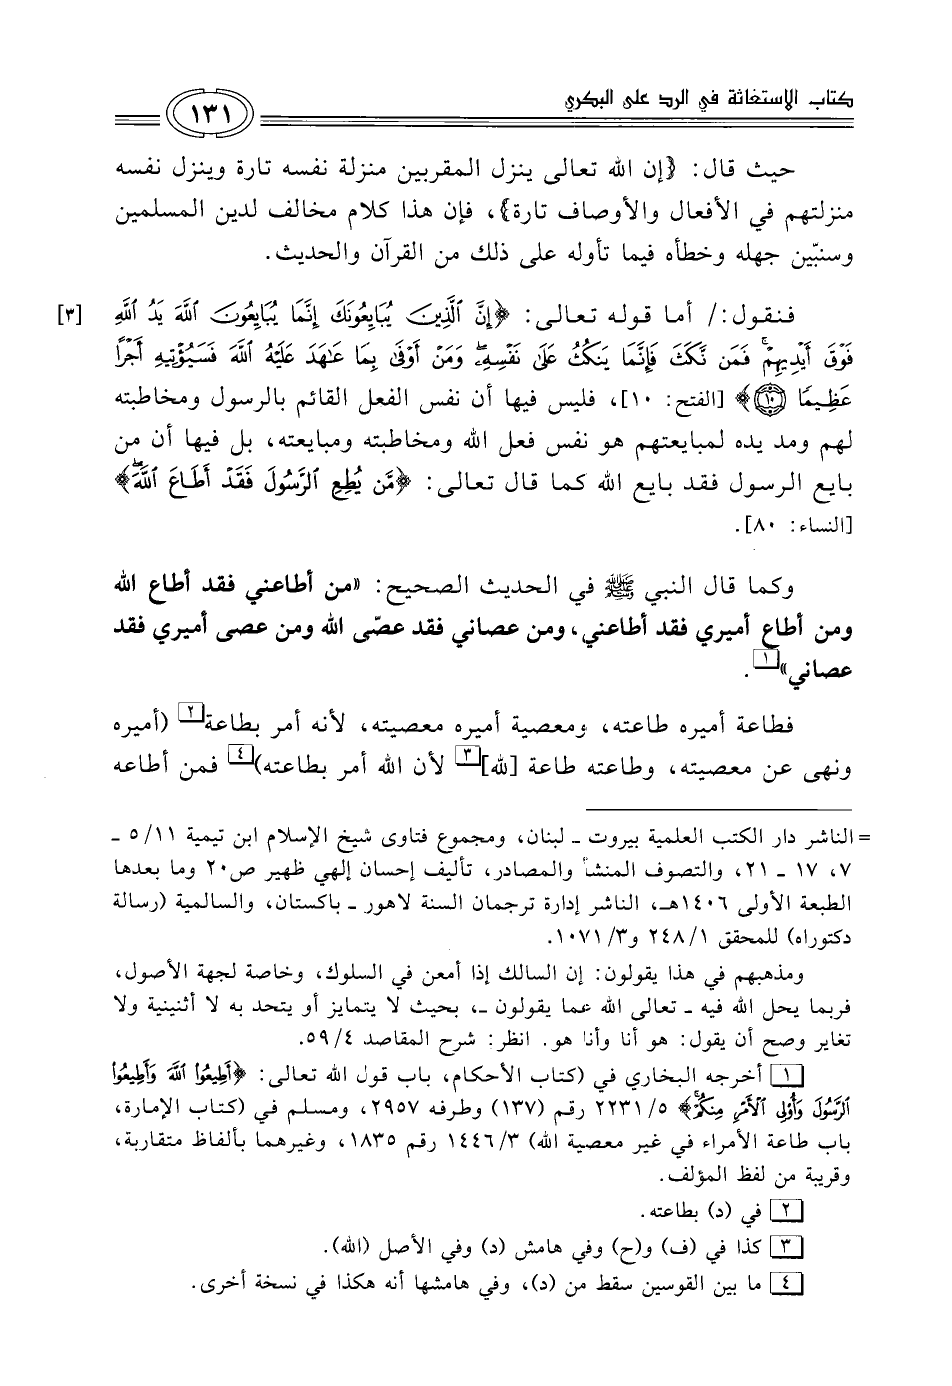 كتاب الاستغاثة في الرد على البكري
١٣١
حيث قال: {إن الله تعالى ينزل المقربين منزلة نفسه تارة وينزل نفسه
منزلتهم في الأفعال والأوصاف تارة}، فإن هذا كلام مخالف لدين المسلمين
وسنبّين جهله وخطأه فيما تأوله على ذلك من القرآن والحديث.
فنقول:/ أما قوله تعالى: ﴿إِنَّ ٱلَّذِينَ يُبَايِعُونَكَ إِنَّمَا يُبَايِعُونَ ٱللَّهَ يَدُ ٱللَّهِ [٣]
فَوْقَ أَيْدِيهِمْ ۚ فَمَن نَّكَثَ فَإِنَّمَا يَنكُثُ عَلَىٰ نَفْسِهِۦ ۖ وَمَنْ أَوْفَىٰ بِمَا عَـٰهَدَ عَلَيْهُ ٱللَّهَ فَسَيُؤْتِيهِ أَجْرًا
عَظِيمًا ۝١٠﴾ [الفتح: ١٠]، فليس فيها أن نفس الفعل القائم بالرسول ومخاطبته
لهم ومد يده لمبايعتهم هو نفس فعل الله ومخاطبته ومبايعته، بل فيها أن من
بايع الرسول فقد بايع الله كما قال تعالى: ﴿مَّن يُطِعِ ٱلرَّسُولَ فَقَدْ أَطَاعَ ٱللَّهَ ۖ﴾
[النساء: ٨٠].
وكما قال النبي ﷺ في الحديث الصحيح: «من أطاعني فقد أطاع الله
ومن أطاع أميري فقد أطاعني، ومن عصاني فقد عصّى الله ومن عصى أميري فقد
عصاني»[١].
فطاعة أميره طاعته، ومعصية أميره معصيته، لأنه أمر بطاعة[٢] (أميره
ونهى عن معصيته، وطاعته طاعة [لله][٣] لأن الله أمر بطاعته)[٤] فمن أطاعه
= الناشر دار الكتب العلمية بيروت ـ لبنان، ومجموع فتاوى شيخ الإسلام ابن تيمية ١١/ ٥ ـ
٧، ١٧ ـ ٢١، والتصوف المنشأ والمصادر، تأليف إحسان إلهي ظهير ص٢٠ وما بعدها
الطبعة الأولى ١٤٠٦هـ، الناشر إدارة ترجمان السنة لاهور ـ باكستان، والسالمية (رسالة
دكتوراه) للمحقق ١/ ٢٤٨ و٣/ ١٠٧١.
ومذهبهم في هذا يقولون: إن السالك إذا أمعن في السلوك، وخاصة لجهة الأصول،
فربما يحل الله فيه ـ تعالى الله عما يقولون ـ، بحيث لا يتمايز أو يتحد به لا أثنينية ولا
تغاير وصح أن يقول: هو أنا وأنا هو. انظر: شرح المقاصد ٤/ ٥٩.
[١] أخرجه البخاري في (كتاب الأحكام، باب قول الله تعالى: ﴿أَطِيعُوا۟ ٱللَّهَ وَأَطِيعُوا۟
ٱلرَّسُولَ وَأُو۟لِى ٱلْأَمْرِ مِنكُمْ ۖ﴾ ٥/ ٢٢٣١ رقم (١٣٧) وطرفه ٢٩٥٧، ومسلم في (كتاب الإمارة،
باب طاعة الأمراء في غير معصية الله) ٣/ ١٤٤٦ رقم ١٨٣٥، وغيرهما بألفاظ متقاربة،
وقريبة من لفظ المؤلف.
[٢] في (د) بطاعته.
[٣] كذا في (ف) و(ح) وفي هامش (د) وفي الأصل (الله).
[٤] ما بين القوسين سقط من (د)، وفي هامشها أنه هكذا في نسخة أخرى.